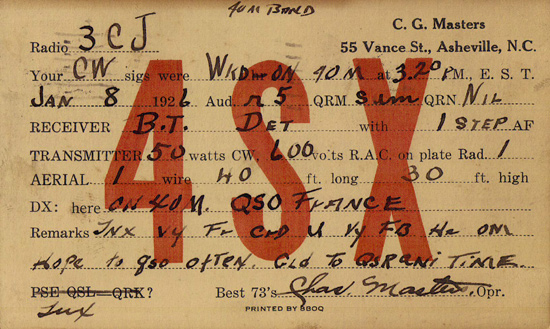 40M BAND
C. G. Masters
Radio 3CJ 55 Vance St., Asheville, N.C.
Your CW sigs were WKD hr ON 40M at 3.20 P.M., E. S. T.
JAN 8 1926 Aud. R5 QRM Sum QRN NIL
RECEIVER B.T. DET with 1 STEP AF
TRANSMITTER 50 watts CW, 600 volts R.A.C. on plate Rad. 1
AERIAL 1 wire 40 ft. long 30 ft. high
DX: here ON 40M. QSO FRANCE
Remarks Tnx Vy Fr Crd U Vy FB Hr OM
Hope to qso often. Gld To QSR ANI TIME.
PSE QSL QRK? Best 73's Chas Masters. Opr.
Tnx
PRINTED BY 8BOQ
4SX